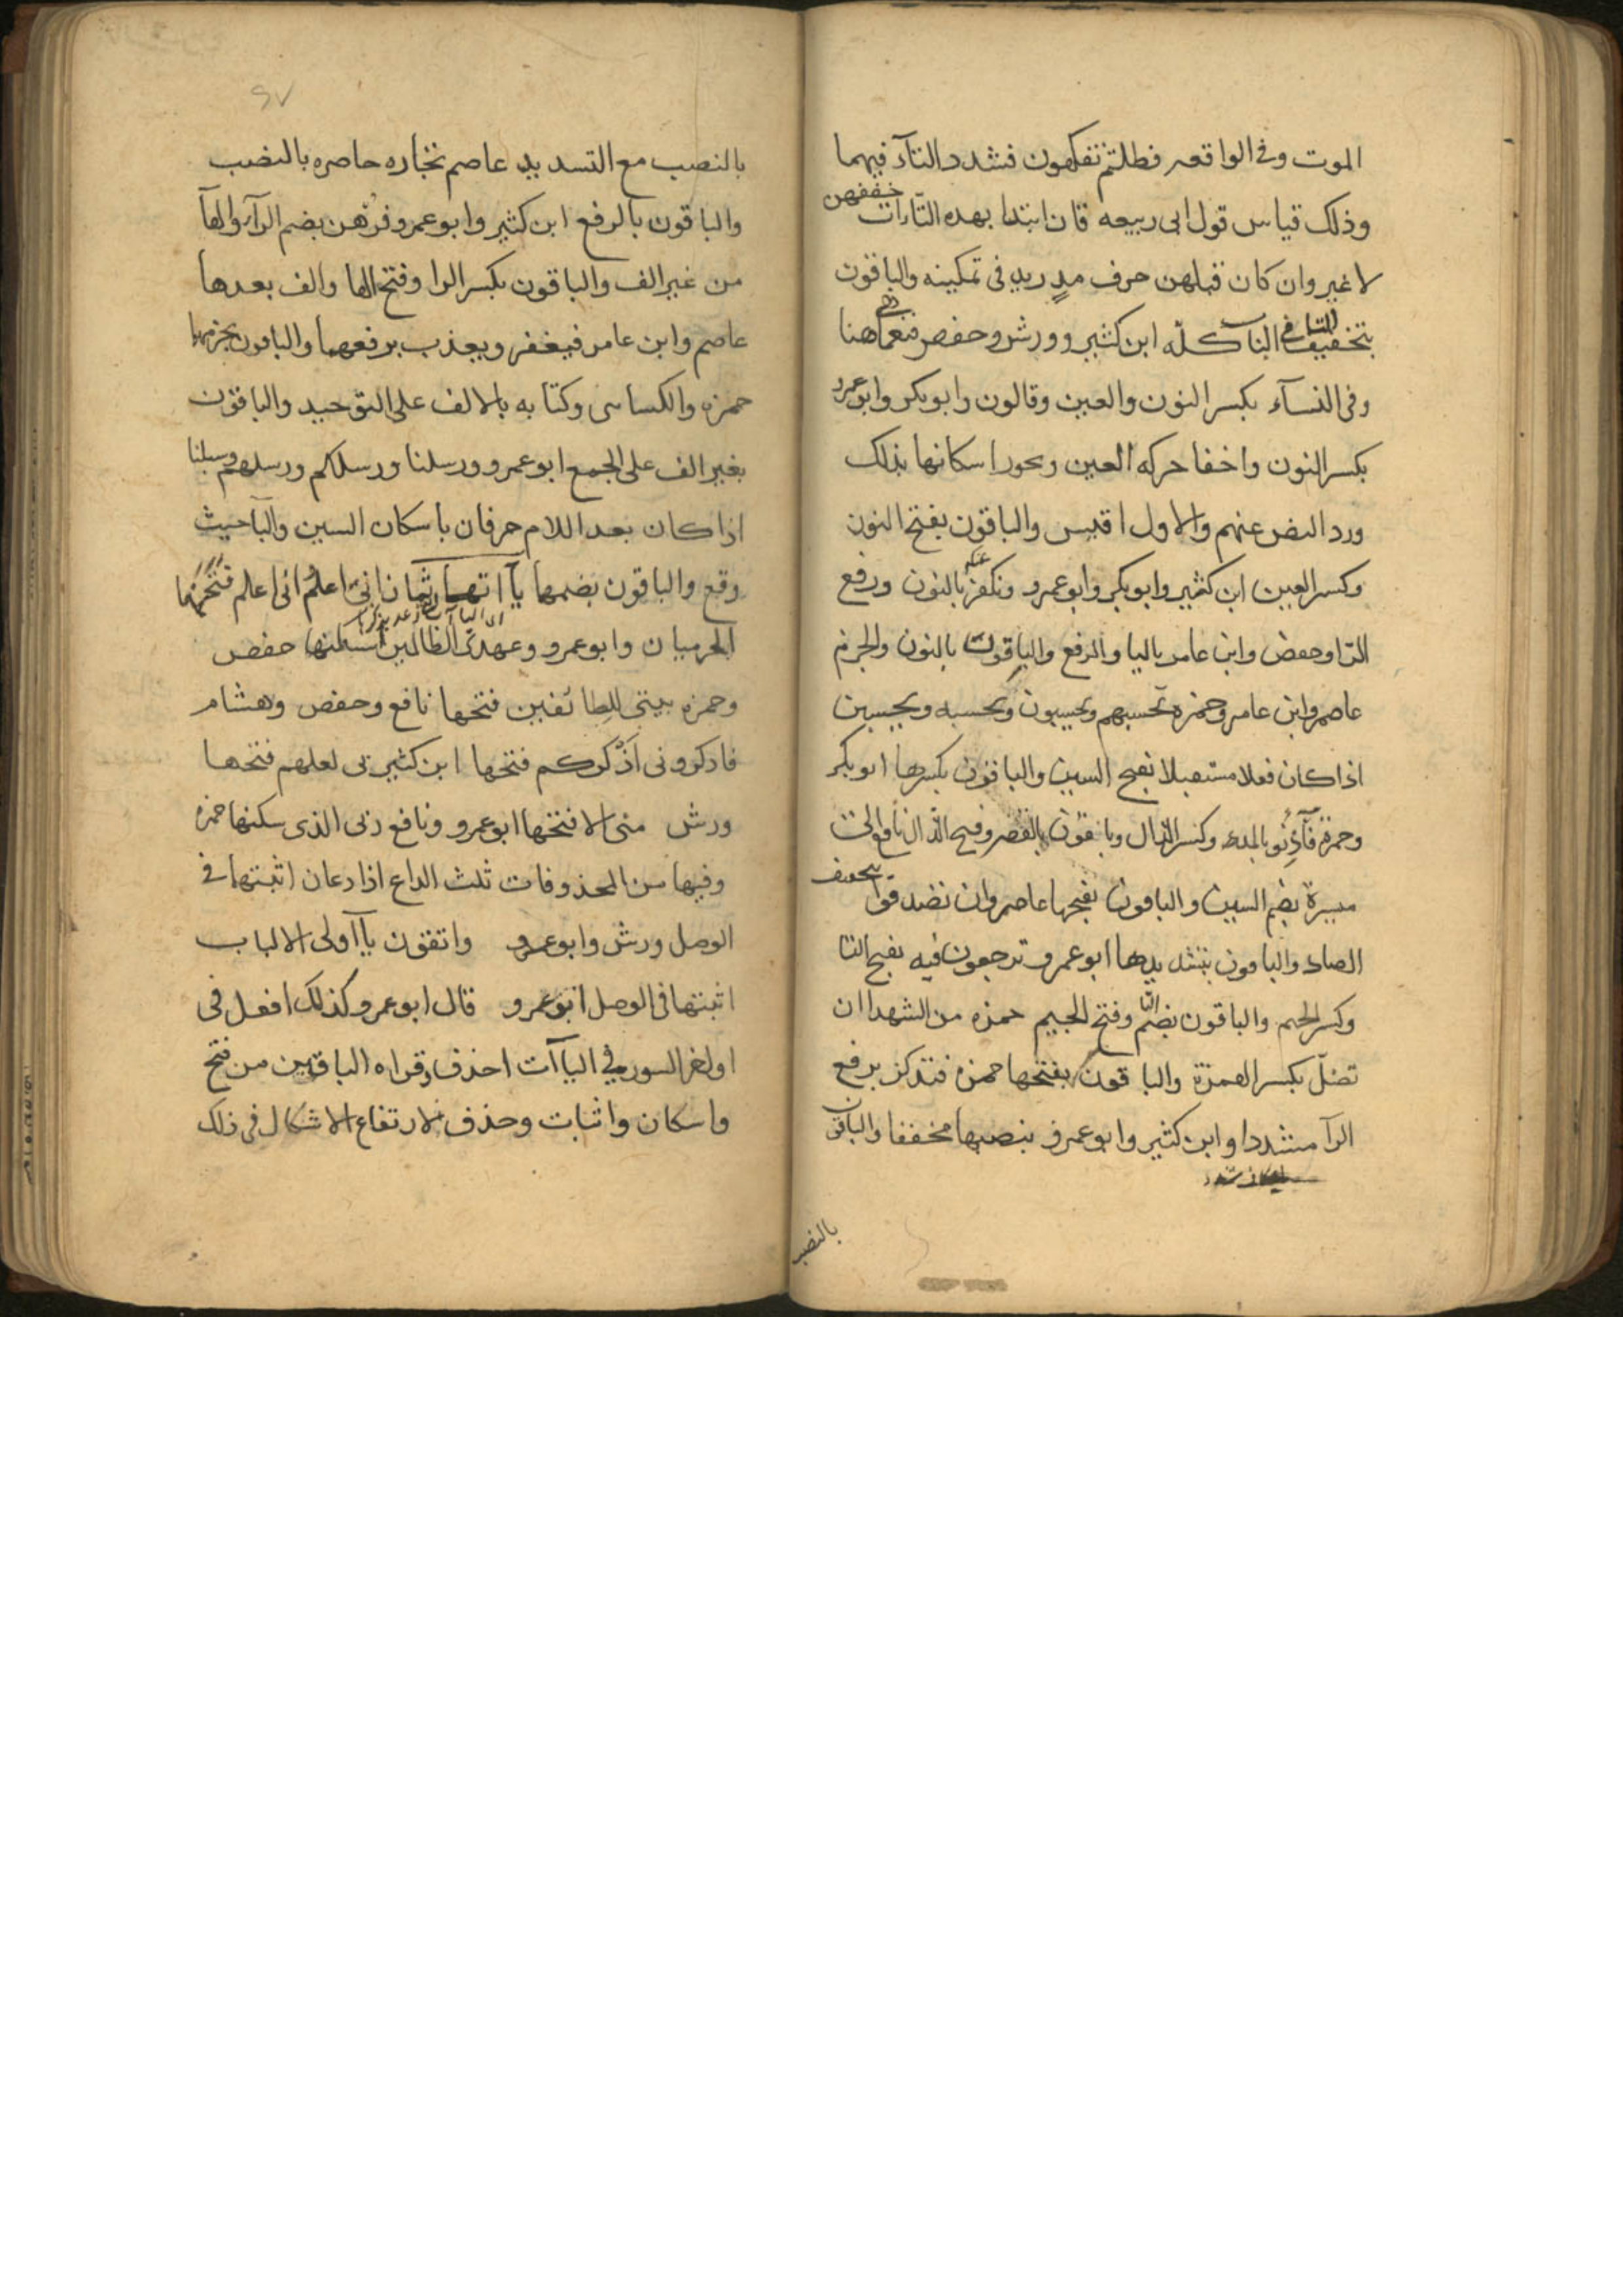 الموت وفي الواقعه فظلتم تفكهون فشدد التآء فيهما
وذلك قياس قول ابى ربيعه فان ابتدا بهذه التاءات خففهن
لا غير وان كان قبلهن حرف مدٍ زيد فى تمكينه والباقون
بتخفيف التا فى الباب كلّه ابن كثير وورش وحفص فنعما هى هنا
وفى النسآء بكسر النون والعين وقالون وابو بكر وابو عمرو
بكسر النون واخفا حركه العين ويجوز اسكانها بذلك
ورد النص عنهم والاول اقيس والباقون بفتح النون
وكسر العين ابن كثير وابو بكر وابو عمرو ونكفر عنكم بالنون ورفع
الرا وحفص وابن عامر باليا والرفع والباقون بالنون والجزم
عاصم وابن عامر وحمزه تحسبهم ويحسبون ويحسبه ويحسبن
اذا كان فعلا مستقبلا بفتح السين والباقون بكسرها ابو بكر
وحمزة فآذِنُو بالمد وكسر الذال وباقون بالقصر وفتح الذال نافع الى
ميسرة بضم السين والباقون بفتحها عاصم وان تصدقوا بتخفيف
الصاد والباقون بتشديدها ابو عمرو ترجعون فيه بفتح التا
وكسر الجيم والباقون بضم التا وفتح الجيم حمزه من الشهدا ان
تضلّ بكسر الهمزة والباقون بفتحها حمزه فتذكر برفع
الرآ مشددا وابن كثير وابو عمرو بنصبها مخففا والباقون
بالنصب
بالنصب مع التشديد عاصم تجاره حاضره بالنصب
والباقون بالرفع ابن كثير وابو عمرو فرُهن بضم الرآء والهآ
من غير الف والباقون بكسر الرا وفتح الها والف بعدها
عاصم وابن عامر فيغفر ويعذب برفعهما والباقون بجزمهما
حمزه والكساىى وكتابه بالالف على التوحيد والباقون
بغير الف على الجمع ابو عمرو ورسلنا ورسلكم ورسلهم وسبلنا
اذا كان بعد اللام حرفان باسكان السين والبآ حيث
وقع والباقون بضمها يآاتها ثمان انىّ اعلمُ انى اعلم فتحهما
الحرميان وابو عمرو وعهدى الظالمين اسكنها حفص
وحمزه بيتى للطائفين فتحها نافع وحفص وهشام
فاذكرونى اذكركم فتحها ابن كثير بى لعلهم فتحها
ورش منى الا فتحها ابو عمرو ونافع ربى الذى سكنها حمزه
وفيها من المحذوفات ثلث الداع اذا دعان اثبتها فى
الوصل ورش وابو عمرو واتقون يآ اولى الالباب
اثبتها فى الوصل ابو عمرو قال ابو عمرو كذلك افعل فى
اواخر السور فى اليآآت احذف قراه الباقين من فتح
واسكان واثبات وحذف لارتفاع الاشكال فى ذلك